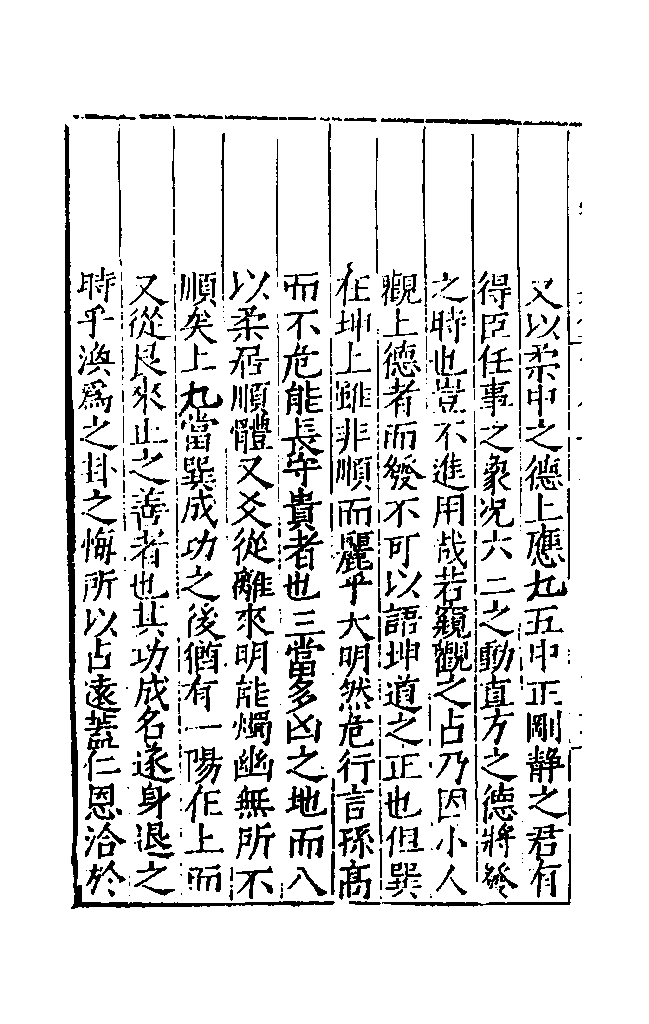 又以柔中之德上應九五中正剛靜之君有
得臣任事之象况六二之動直方之德將發
之時也豈不進用哉若窺觀之占乃因小人
觀上德者而發不可以語坤道之正也但巽
在坤上雖非順而麗乎大明然危行言孫高
而不危能長守貴者也三當多凶之地而八
以柔居順體又爻從離來明能燭幽無所不
順矣上九當巽成功之後猶有一陽在上而
又從艮來止之善者也其功成名遂身退之
時乎渙爲之卦之悔所以占遠蓋仁恩洽於